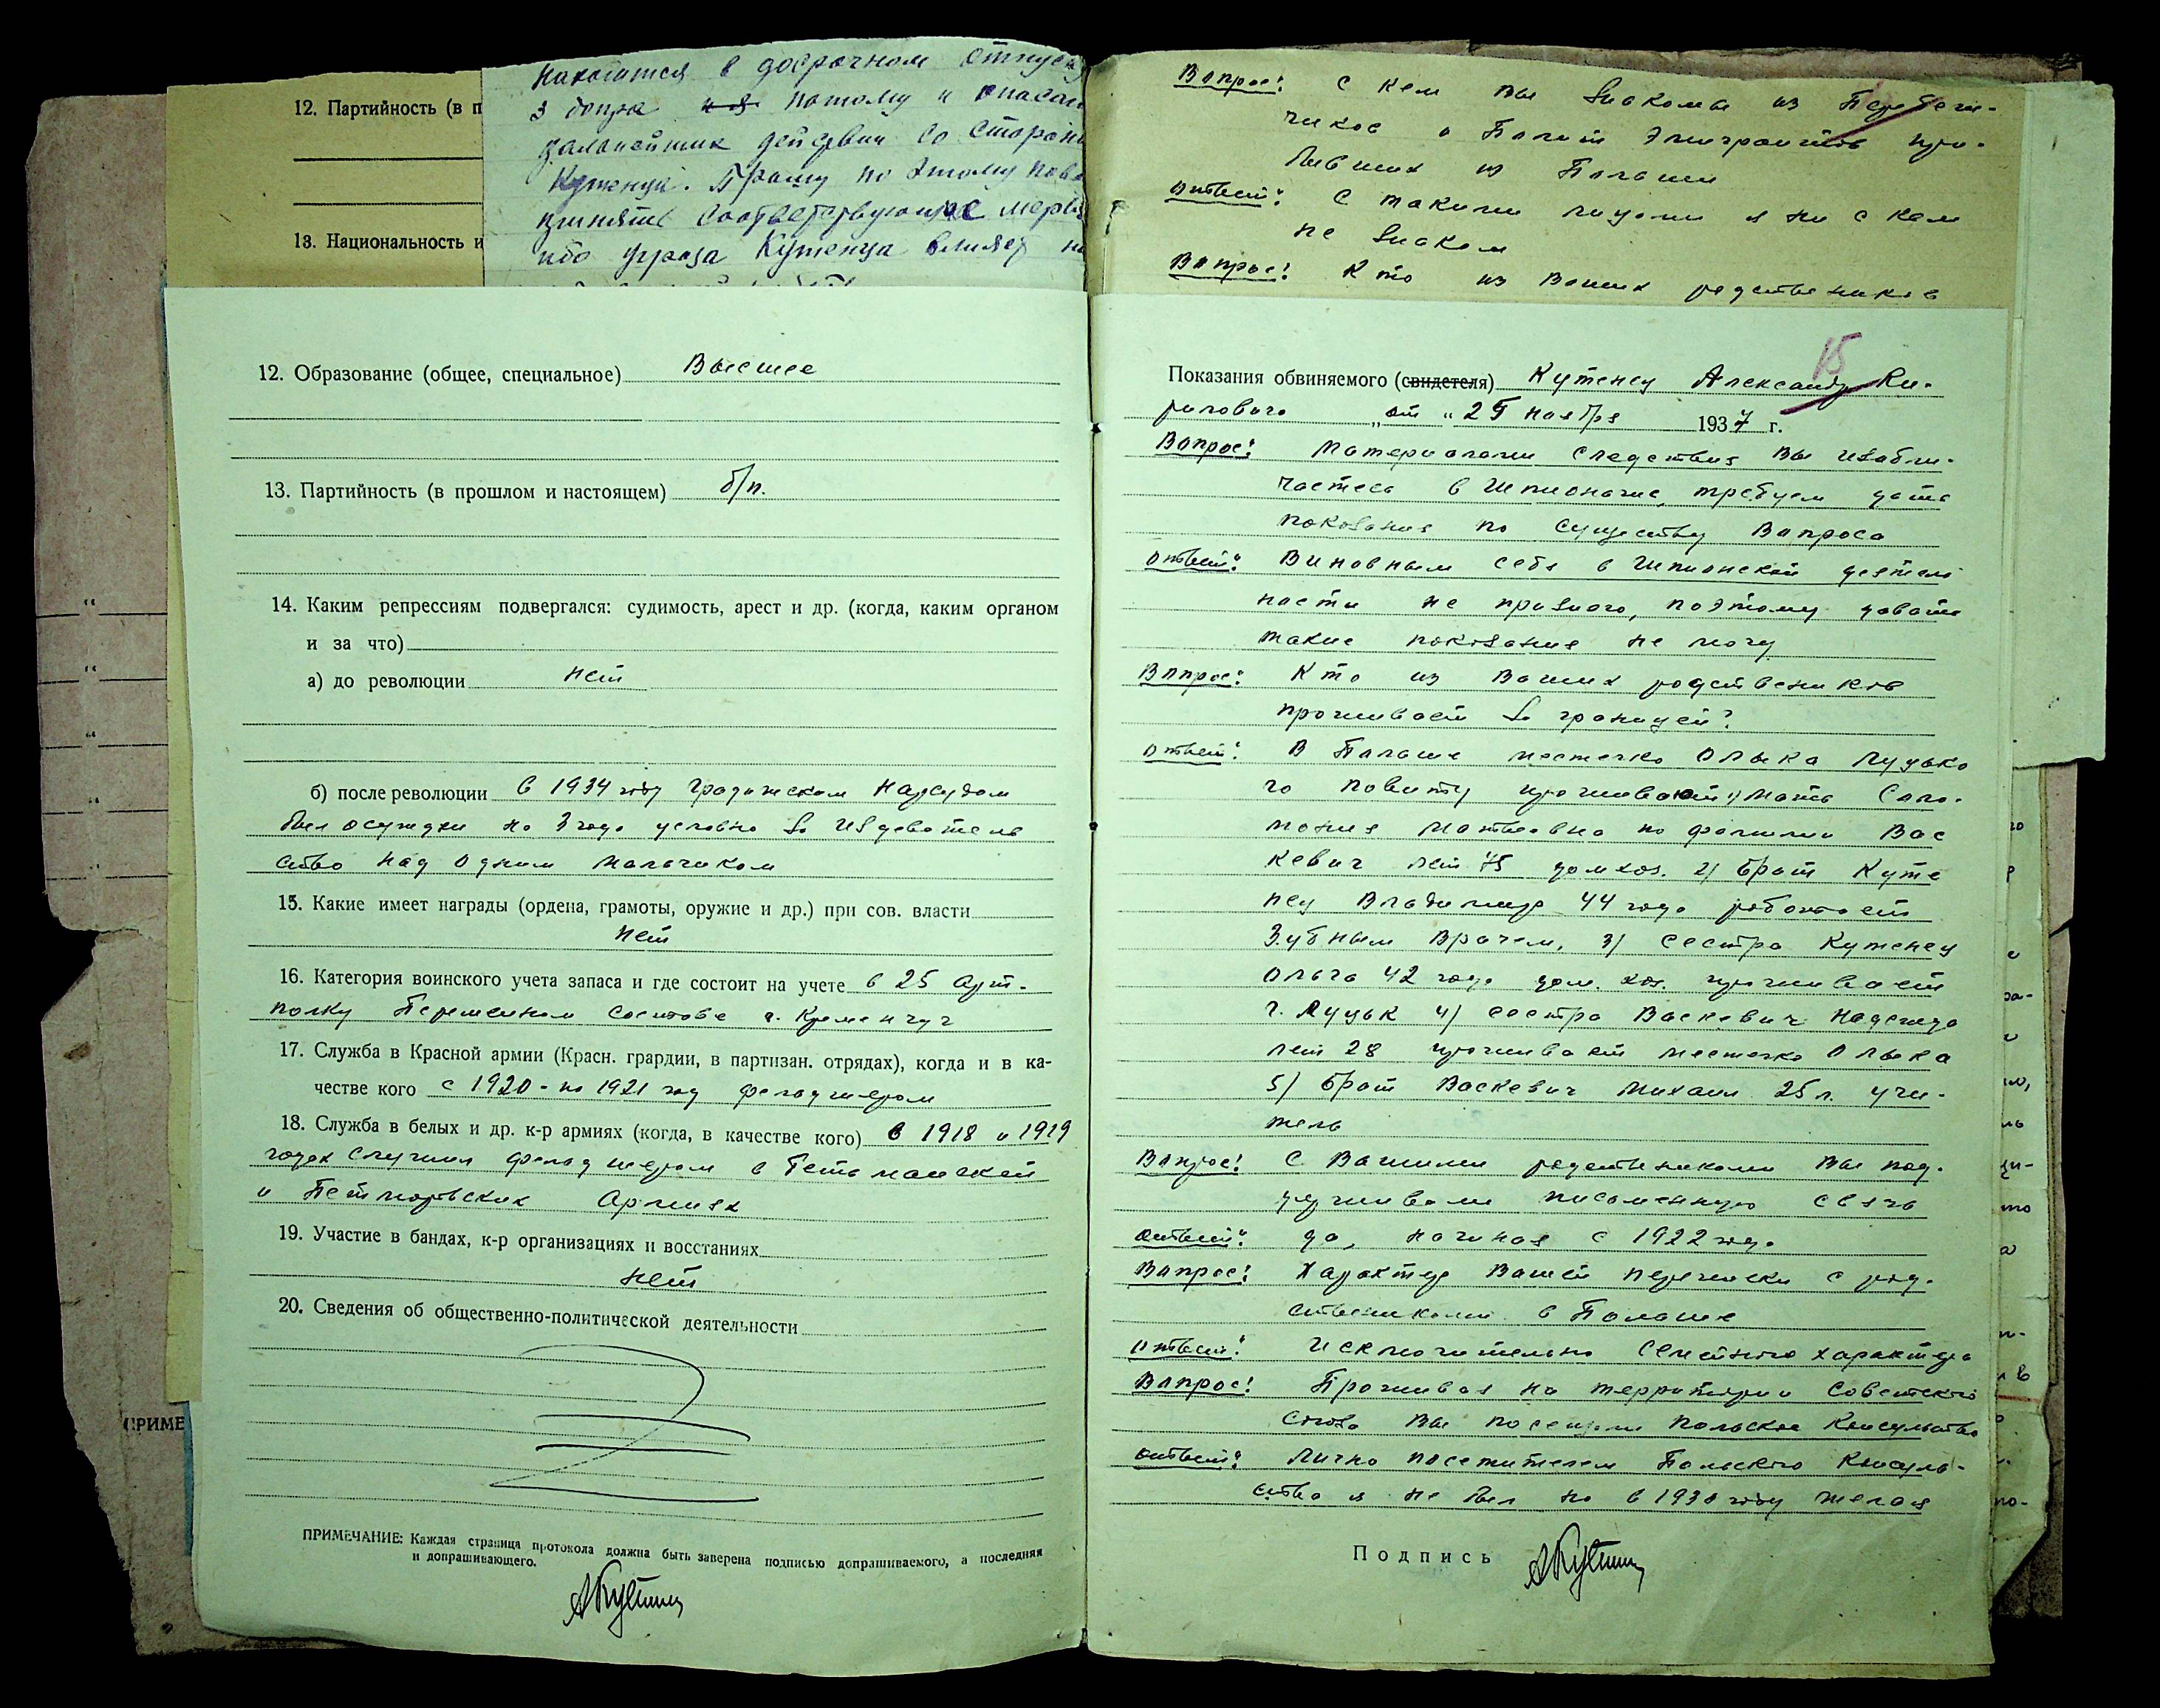 12. Партийность (в п
13. Национальность и
находится в досрочном отпуск
з допра и я потому и опасаю
дальнейших действий со сторон
Кутенца. Прошу по этому пово
принять соответствующие меры
ибо угроза Кутенца влияет на
12. Образование (общее, специальное) Высшее
13. Партийность (в прошлом и настоящем) б/п.
14. Каким репрессиям подвергался: судимость, арест и др. (когда, каким органом
и за что)
а) до революции нет
б) после революции в 1934 году Градижском Нарсудом
был осужден на 3 года условно за издеватель
ство над одним мальчиком
15. Какие имеет награды (ордена, грамоты, оружие и др.) при сов. власти
нет
16. Категория воинского учета запаса и где состоит на учете в 25 Арт-
полку Переменном составе г. Кременчуг
17. Служба в Красной армии (Красн. грардии, в партизан. отрядах), когда и в ка-
честве кого с 1920 - по 1921 год фельдшером
18. Служба в белых и др. к-р армиях (когда, в качестве кого) в 1918 и 1919
годах служил фельдшером в Гетьманской
и Петлюровских Армиях
19. Участие в бандах, к-р организациях и восстаниях
нет
20. Сведения об общественно-политической деятельности
ПРИМЕЧАНИЕ: Каждая страница протокола должна быть заверена подписью допрашиваемого, а последняя
и допрашивающего.
АКутенец
ПРИМЕ
Вопрос: С кем вы знакомы из Перебеж-
чиков и Полит Эмигрантов при-
бывших из Польши
Ответ: С такими лицами я ни с кем
не знаком
Вопрос: Кто из Ваших родствеников
15
Показания обвиняемого (свидетеля) Кутенец Александр Ки-
рилович
„от „25 ноября 1937 г.
Вопрос: Материалами следствия Вы изабли-
чаетесь в Шпионаже, требуем дать
показания по существу Вопроса
Ответ: Виновным себя в Шпионской деятель
ности не признаю, поэтому давать
такие показания не могу
Вопрос: Кто из Ваших родствеников
проживает за границей?
Ответ: В Польше местечко Олыка Луцько
го повиту проживают 1) Мать Сало-
мония Матвеевна по фамилии Вас
кевич лет 75 домхоз. 2) брат Куте
нец Владимир 44 года работает
Зубным Врачем, 3) сестра Кутенец
Ольга 42 года дом. хоз. проживает
г. Луцьк 4) сестра Васкевич Надежда
лет 28 проживает местечко Олыка
5) брат Васкевич Михаил 25 л. учи-
тель
Вопрос: С Вашими родствениками Вы под-
держивали письменную связь
Ответ: Да, начиная с 1922 года
Вопрос: Характер Вашей переписки с род-
ствениками в Польше
Ответ: Исключительно семейного характера
Вопрос: Проживая на территории Советского
Союза Вы посещали Польское Консульство
Ответ: Лично посетителем Польского Консуль-
ства я не был но в 1930 году желая
Подпись АКутенец